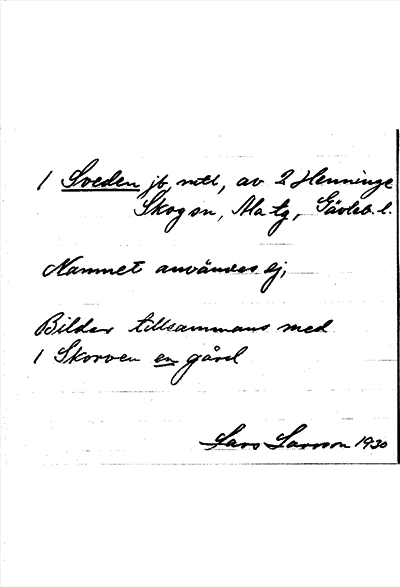 1 Sveden jb, mtl, av 2 Henninge
Skogsn, Gävleb. l.
Namnet användes ej,
Bildar tillsammans med
1 Skorven en gård
Lars Larsson 1930